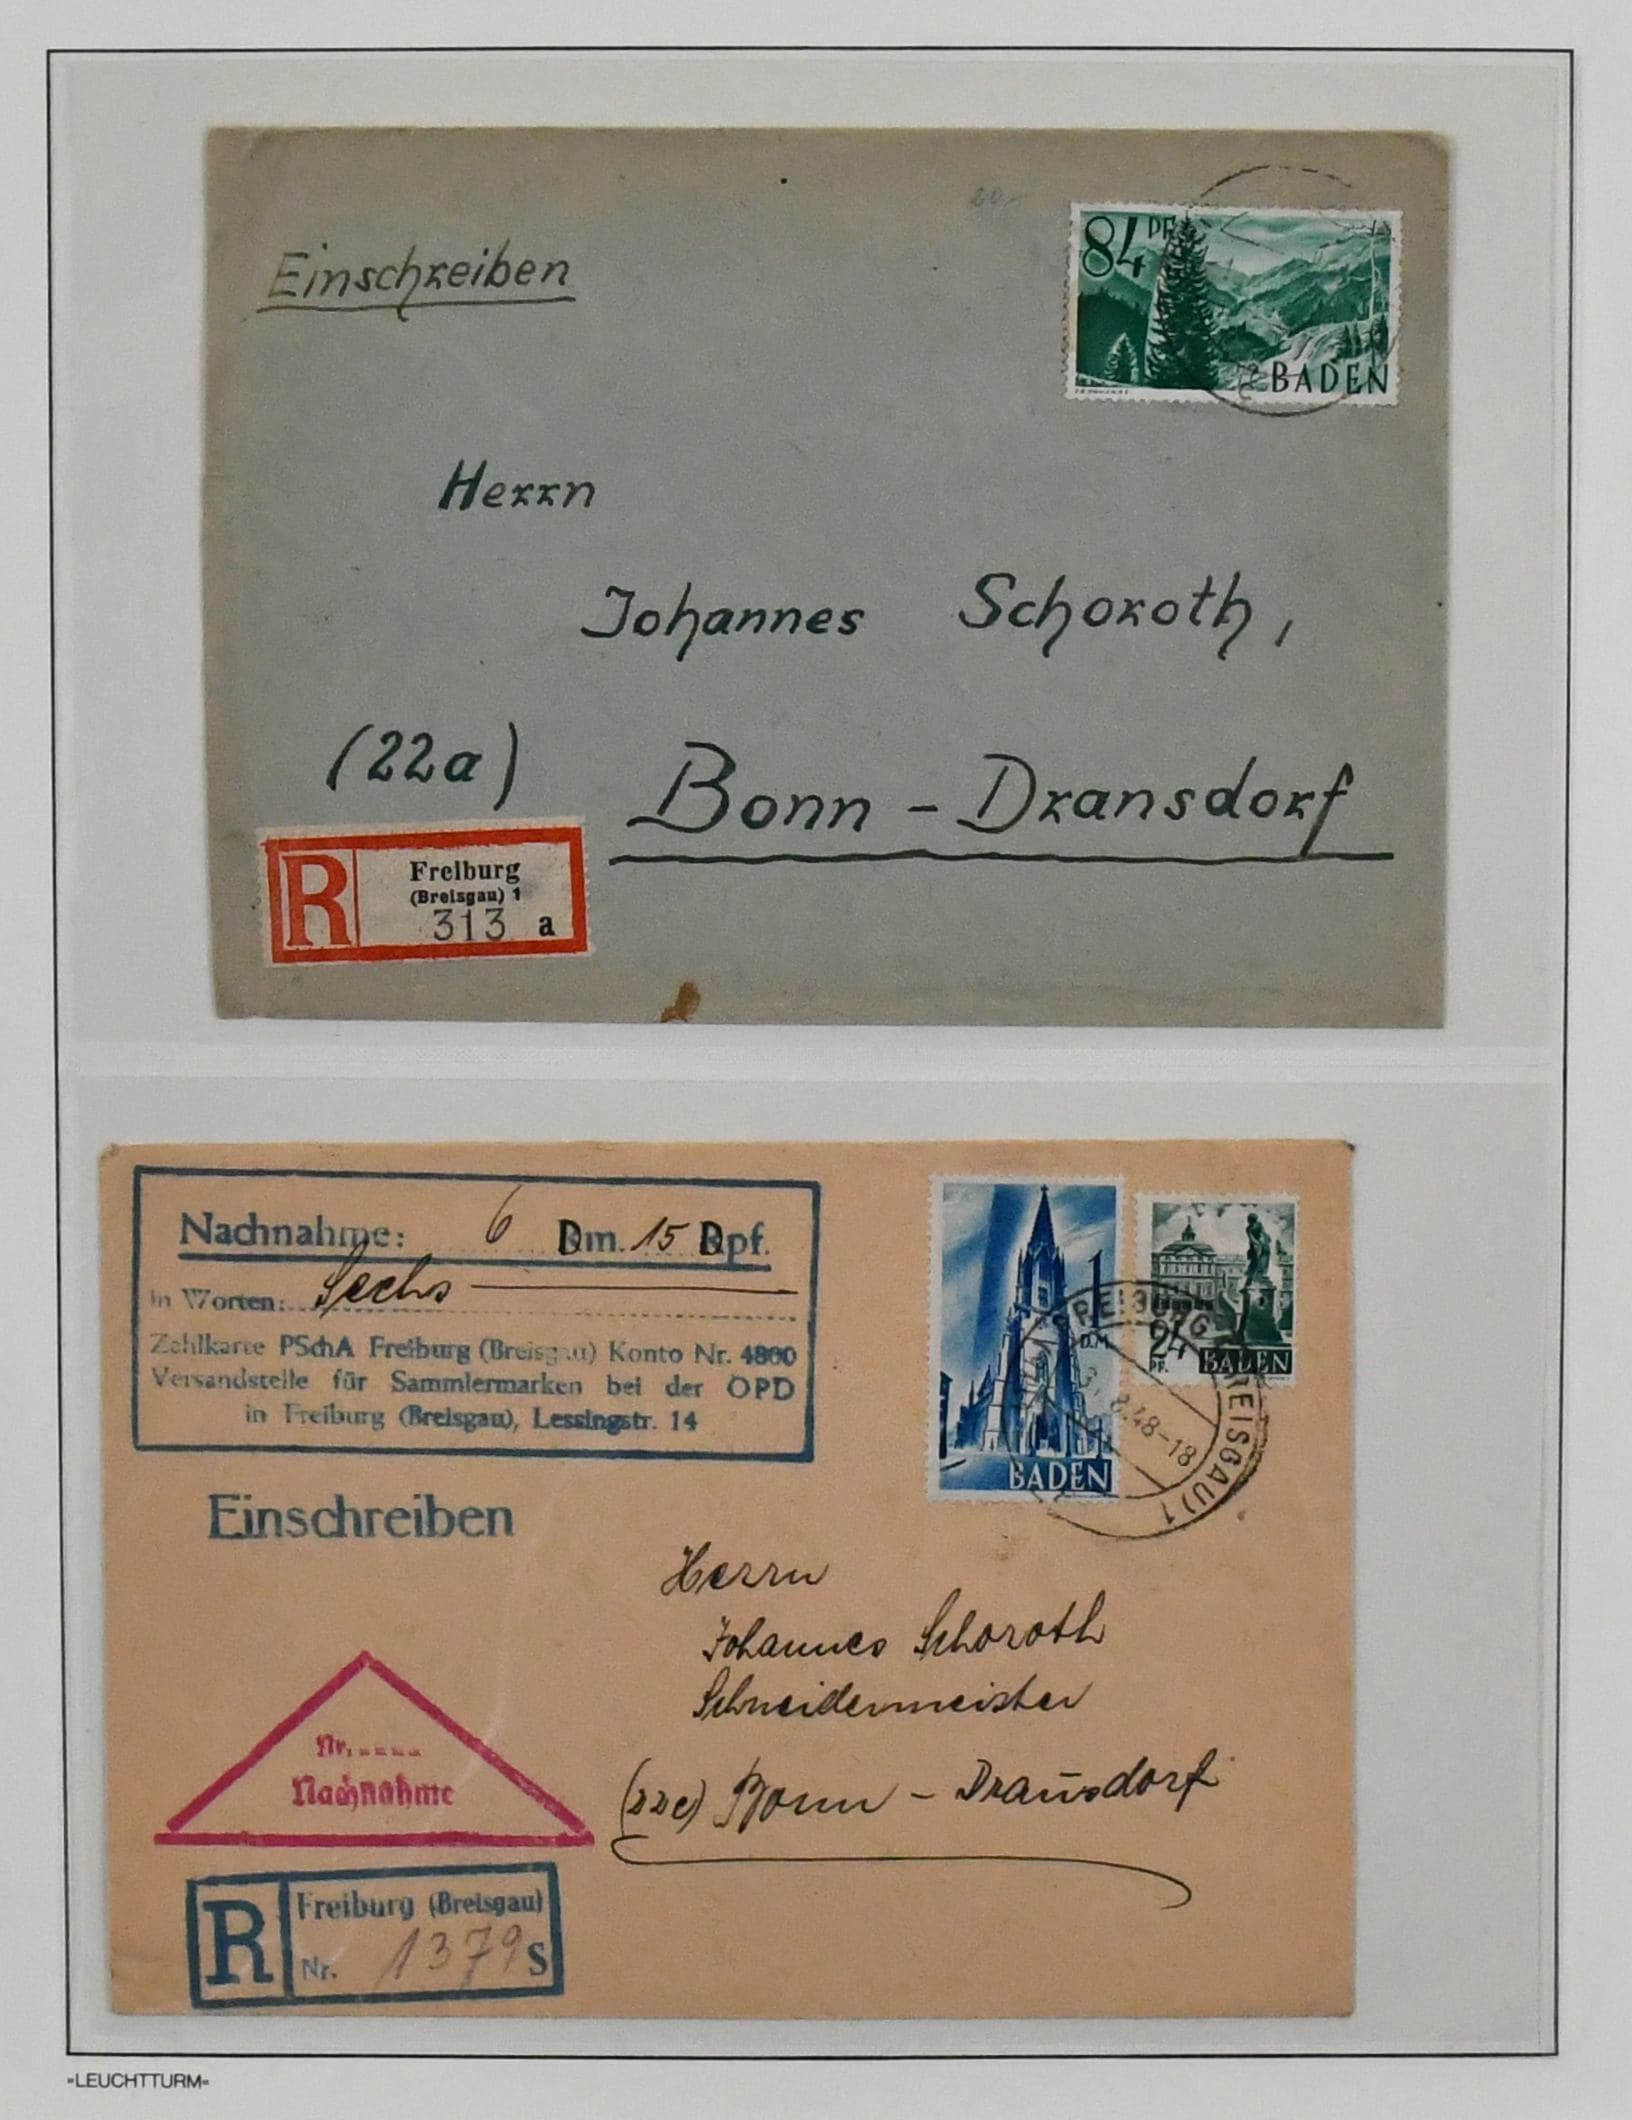 20.-
84 PF
BADEN
Einschreiben
Herrn
Johannes Schoroth,
(22a) Bonn-Dransdorf
R Freiburg
(Breisgau) 1
313 a
Nachnahme: 6 Dm. 15 Dpf.
In Worten: Sechs
Zahlkarte PSchA Freiburg (Breisgau) Konto Nr. 4800
Versandstelle für Sammlermarken bei der OPD
in Freiburg (Breisgau), Lessingstr. 14
1
D.M.
BADEN
24
PF.
BADEN
FREIBURG (BREISGAU) 1
8.48-18
Einschreiben
Herrn
Johannes Schoroth
Schneidermeister
(22c) Bonn-Dransdorf
Nr.
Nachnahme
R Freiburg (Breisgau)
Nr. 1379 S
»LEUCHTTURM«